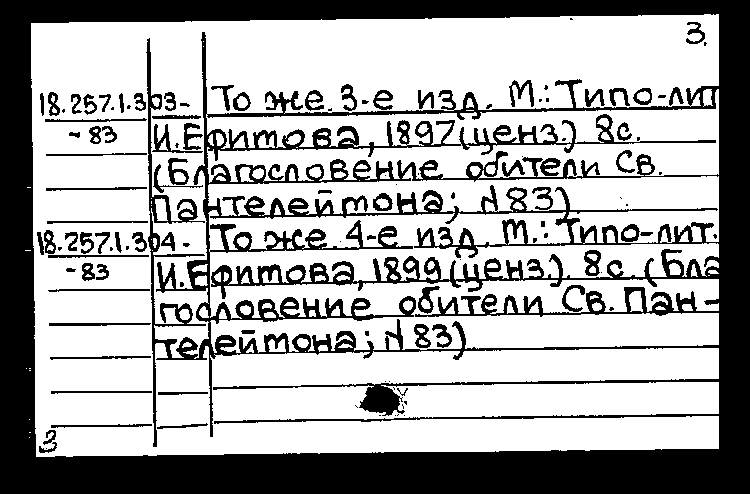 3.
18.257.1.303- То же. 3-е изд. М.: Типо-лит
-83 И.Ефимова, 1897(ценз.) 8с.
(Благословение обители Св.
Пантелеймона; N 83)
18.257.1.304- То же. 4-е изд. М.: Типо-лит.
-83 И.Ефимова, 1899(ценз.). 8с. (Бла
гословение обители Св. Пан-
телеймона; N 83)
3